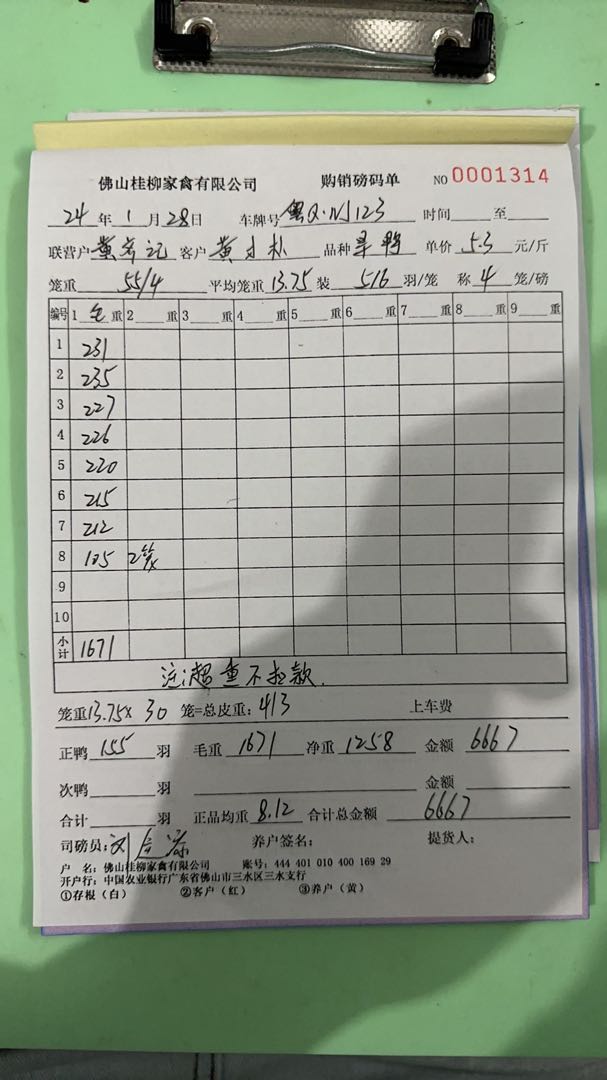 佛山桂柳家禽有限公司 购销磅码单 NO 0001314
24 年 1 月 28 日 车牌号 粤Q·NJ123 时间 至
联营户 客户 黄 品种 单价 5.3 元/斤
笼重 55/4 平均笼重 13.75 装 5/6 羽/笼 称 4 笼/磅
编号 1 毛 重 2 重 3 重 4 重 5 重 6 重 7 重 8 重 9 重
1 231
2 235
3 227
4 226
5 220
6 215
7 212
8 105 2笼
9
10
小计 1671
注:超重不扣款.
笼重 13.75× 30 笼=总皮重: 413 上车费
正鸭 155 羽 毛重 1671 净重 1258 金额 6667
次鸭 羽 金额
合计 羽 正品均重 8.12 合计总金额 6667
司磅员: 刘 养户签名: 提货人:
户 名: 佛山桂柳家禽有限公司 账号: 444 401 010 400 169 29
开户行: 中国农业银行广东省佛山市三水区三水支行
①存根(白) ②客户(红) ③养户(黄)